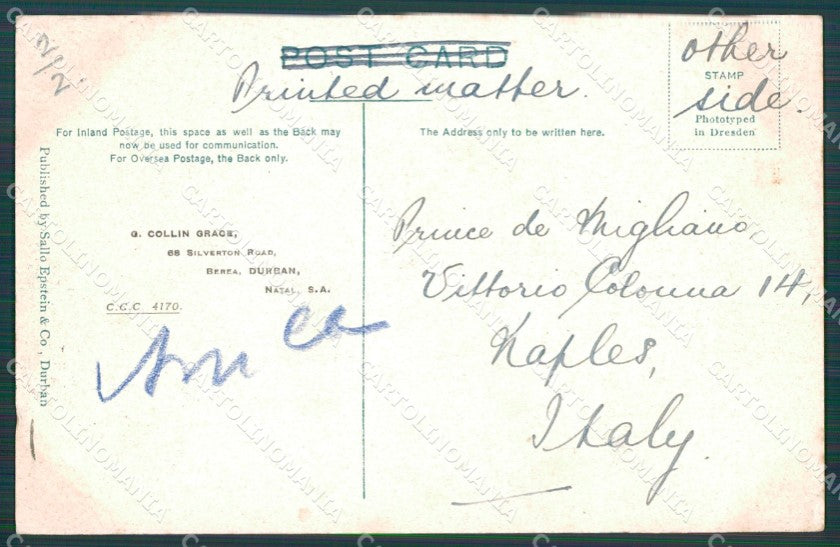 POST CARD
Printed matter.
other
STAMP
side.
Phototyped
in Dresden
For Inland Postage, this space as well as the Back may
now be used for communication.
For Oversea Postage, the Back only.
The Address only to be written here.
Published by Sallo Epstein & Co, Durban
G. COLLIN GRACE,
68 SILVERTON ROAD,
BEREA, DURBAN,
NATAL, S.A.
C.C.C 4170.
Prince de Migliano
Vittorio Colonna 14,
Naples,
Italy.
CARTOLINOMANIA